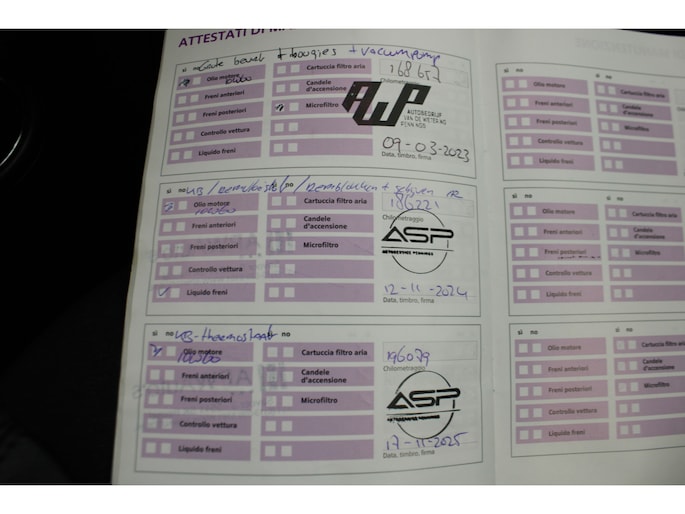 ATTESTATI DI MA
+ bougies + vacuumpomp
sì no
Olio motore
Cartuccia filtro aria
168657
Chilometraggio
Freni anteriori
Candele
d'accensione
Freni posteriori
Microfiltro
AWP
AUTOBEDRIJF
VAN DE WETERING
Controllo vettura
Liquido freni
09-03-2023
Data, timbro, firma
sì no
no
Olio motore
Cartuccia filtro aria
186221
Chilometraggio
Freni anteriori
Candele
d'accensione
Freni posteriori
Microfiltro
ASP
Controllo vettura
Liquido freni
12-11-2024
Data, timbro, firma
KB-thermostaat
sì no
sì no
Olio motore
Cartuccia filtro aria
196079
Chilometraggio
Freni anteriori
Candele
d'accensione
Freni posteriori
Microfiltro
ASP
Controllo vettura
Liquido freni
17-11-2025
Data, timbro, firma
sì no
sì no
Olio motore
Cartuccia filtro aria
Freni anteriori
Candele
d'accensione
Freni posteriori
Microfiltro
Controllo vettura
Liquido freni
sì no
sì no
Olio motore
Cartuccia filtro aria
Freni anteriori
Candele
d'accensione
Freni posteriori
Microfiltro
Controllo vettura
Liquido freni
sì no
sì no
Olio motore
Cartuccia filtro aria
Freni anteriori
Candele
d'accensione
Freni posteriori
Microfiltro
Controllo vettura
Liquido freni